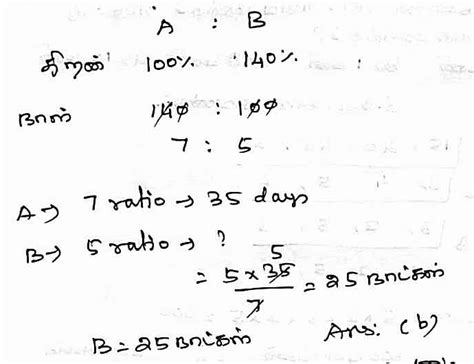 A : B
திறன் 100% : 140%
நாள் 140 : 100
7 : 5
A → 7 ratio → 35 days
B → 5 ratio → ?
5
= 5 x 35 / 7 = 25 நாட்கள்
B = 25 நாட்கள் Ans: (b)